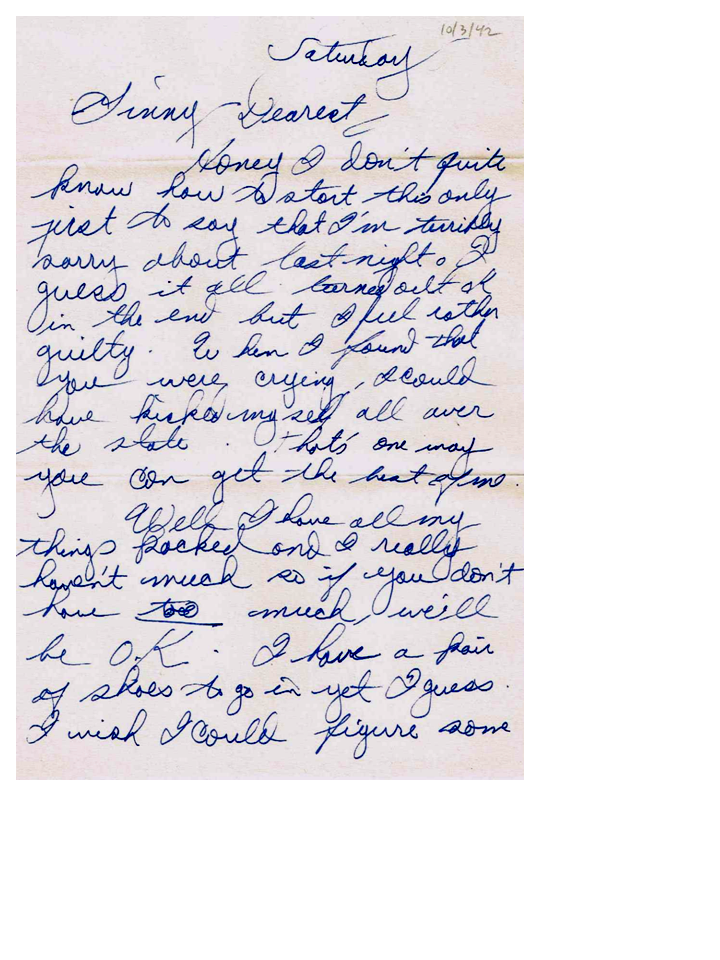 10/3/42
Saturday
Ginny Dearest,
Honey I don't quite
know how to start this only
just to say that I'm terribly
sorry about last night. I
guess it all turned out ok
in the end but I feel rather
guilty. When I found that
you were crying, I could
have kicked myself all over
the state. That's one way
you can get the best of me.
Well I have all my
things packed and I really
haven't much so if you don't
have too much, we'll
be O.K. I have a pair
of shoes to go in yet I guess.
I wish I could figure some